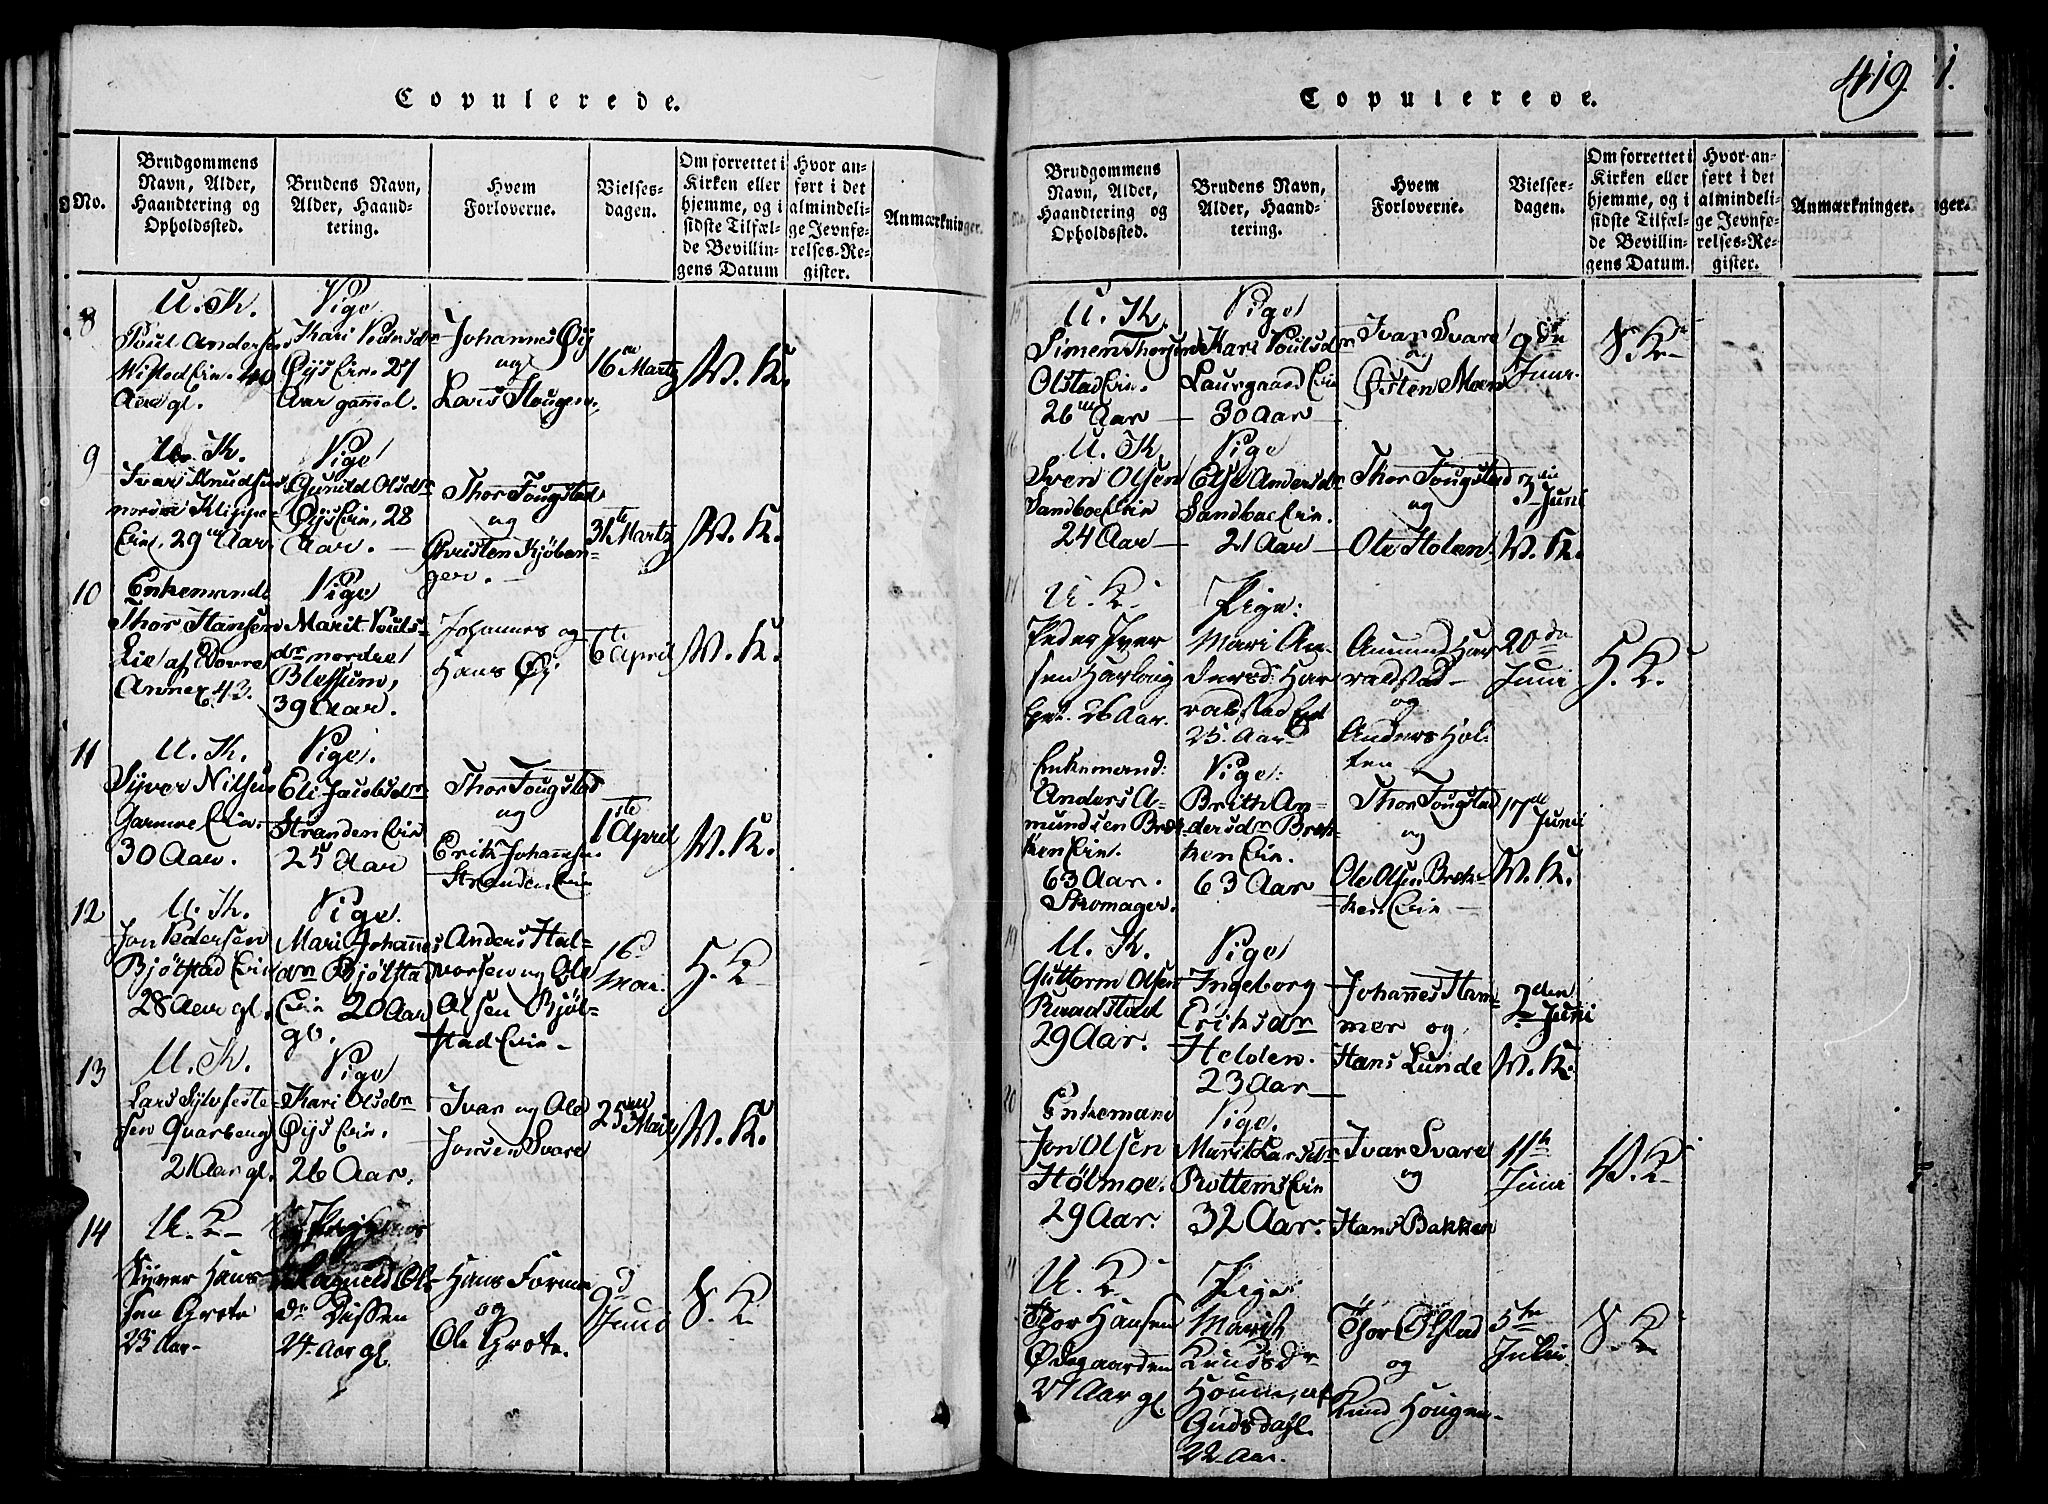 Copulerede.
No.
Brudgommens Navn, Alder, Haandtering og Opholdssted.
Brudens Navn, Alder, Haandtering.
Hvem Forloverne.
Vielsesdagen.
Om forrettet i Kirken eller hjemme, og i sidste Tilfælde Bevillingens Datum
Hvor anført i det almindelige Jevnførelses-Register.
Anmærkninger.
8
U. K.
Poul Andersen
Wisted Eie. 40
Aar gl.
Pige
Kari Pedersdr
Øijs Eie. 27
Aar gammel.
Johannes Øij
og
Lars Hougen,
16en Martz
W. K.
9
U. K.
Ivar Knudsen
nordre Klippe
Eie, 29 Aar.
Pige
Gunild Olsdr
Øijs Eie, 28
Aar. —
Thor Tougstad
og
Christen Kjöben-
ger. —
31te Martz
W. K.
10
Enkemand
Thor Hansen
Lie af Dovre
Annex 43.
Pige
Marit Pouls-
dr nordre
Blessum,
39 Aar.
Johannes og
Hans Øij
6te April
W. K.
11
U. K.
Syver Nilsen
Garmoe Eie.
30 Aar.
Pige.
Eli Jacobsdr
Stranden Eie
25 Aar
Thor Tougstad
og
Erik Johannsen
Stranden Eie
1ste April
W. K.
12
U. K.
Jon Pedersen
Bjölstad Eie
28 Aar gl.
Pige
Mari Johannes
dr Bjölstad
Eie 20 Aar
gl.
Anders Hal-
vorsen og Ole
Olsen Bjöl-
stad Eie —
16d
Mai.
H. K
13
U. K.
Lars Sylveste-
sen Quarberg
21 Aar gl.
Pige
Kari Olsdr
Øijs Eie.
26 Aar.
Ivar og Ole
Jonsen Svare
25 Mai
W. K.
14
U. K—
Syver Hans
sen Grote
25 Aar—
Pige
Ragnild Ols
dr Dissen
24 Aar gl.
Hans Formo
og
Ole Grote.
9d
Juni
S. K
Copulerede.
419.
Brudgommens Navn, Alder, Haandtering og Opholdssted.
Brudens Navn, Alder, Haandtering.
Hvem Forloverne.
Vielsesdagen.
Om forrettet i Kirken eller hjemme, og i sidste Tilfælde Bevillingens Datum.
Hvor anført i det almindelige Jevnførelses-Register.
Anmærkninger.
15
U. K.
Simen Thorsen
Olstad Eie.
26 Aar —
Pige
Kari Poulsdr
Laurgaard Eie
30 Aar —
Ivar Svare
og
Østen Moen
9de
Juni.
S. K—
16
U. K.
Sven Olsen
Sandboe Eie
24 Aar —
Pige
Else Andersdr
Sandboe Eie.
21 Aar —
Thor Tougstad
og
Ole Holen
3die Juni
W. K.
17
U. K.
Peder Iver
sen Harlaug
Eiet. 26 Aar.
Pige:
Mari An-
dersd: Har
ralstad Eiet
25. Aar—
Amund Har
ralstad—
og
Anders Hol-
ten
20de
Juni
H. K.
18
Enkemand:
Anders A-
mundsen Brek
ken Eie.
63 Aar.
Skomager.
Pige:
Brith An-
dersdr Brek-
ken Eie.
63 Aar
Thor Tougstad
og
Ole Olsen Brek-
ken Eie —
17de Juni
W. K.
19
U. K.
Guttorm Olsen
Raadstad
29 Aar.
Pige
Ingeborg
Eriksdr
Helden.
23 Aar —
Johannes Ham-
mer og
Hans Lunde
2den Juni
W. K.
20
Enkemand
Jon Olsen
Hölmoe.
29 Aar.
Pige.
Marit Larsdr
Rottems Eie
32 Aar.
Ivar Svare
og
Hans Bakken
11te
Juni
W. K—
21
U. K.
Thor Hansen
Ødegaarden
27 Aar gl.
Pige
Marit
Knudsdr
Houne, af
Gudsdahl.
22 Aar.
Thor Olstad
og
Knud Hougen—
5te
Julii
S. K—